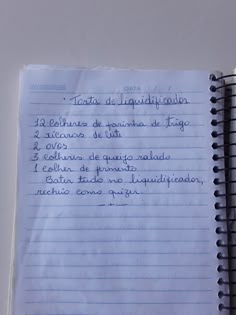 . Torta de liquidificador
12 colheres de farinha de trigo
2 xícaras de leite
2 ovos
3 colheres de queijo ralado
1 colher de fermento
Bater tudo no liquidificador,
recheio como quizer.